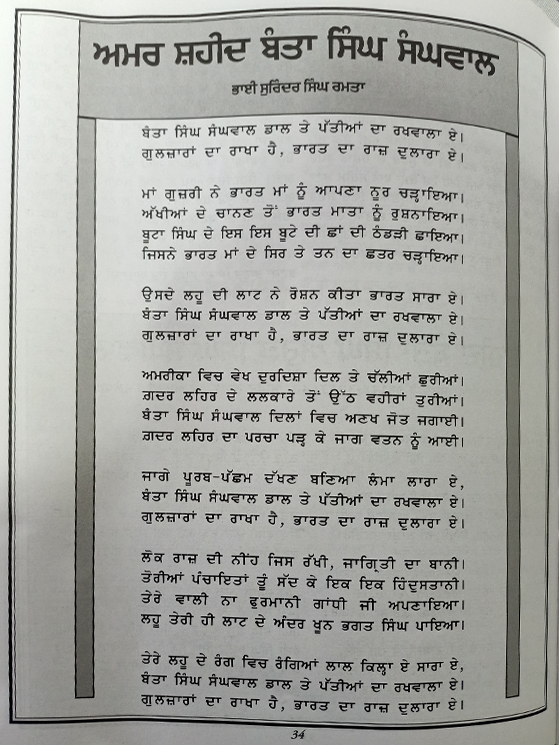 ਅਮਰ ਸ਼ਹੀਦ ਬੰਤਾ ਸਿੰਘ ਸੰਘਵਾਲ
ਭਾਈ ਸੁਰਿੰਦਰ ਸਿੰਘ ਰਮਤਾ
ਬੰਤਾ ਸਿੰਘ ਸੰਘਵਾਲ ਡਾਲ ਤੇ ਪੱਤੀਆਂ ਦਾ ਰਖਵਾਲਾ ਏ।
ਗੁਲਜ਼ਾਰਾਂ ਦਾ ਰਾਖਾ ਹੈ, ਭਾਰਤ ਦਾ ਰਾਜ਼ ਦੁਲਾਰਾ ਏ।
ਮਾਂ ਗੁਜ਼ਰੀ ਨੇ ਭਾਰਤ ਮਾਂ ਨੂੰ ਆਪਣਾ ਨੂਰ ਚੜ੍ਹਾਇਆ।
ਅੱਖੀਆਂ ਦੇ ਚਾਨਣ ਤੋਂ ਭਾਰਤ ਮਾਤਾ ਨੂੰ ਰੁਸ਼ਨਾਇਆ।
ਬੂਟਾ ਸਿੰਘ ਦੇ ਇਸ ਇਸ ਬੂਟੇ ਦੀ ਛਾਂ ਦੀ ਠੰਡੜੀ ਛਾਇਆ।
ਜਿਸਨੇ ਭਾਰਤ ਮਾਂ ਦੇ ਸਿਰ ਤੇ ਤਨ ਦਾ ਛਤਰ ਚੜ੍ਹਾਇਆ।
ਉਸਦੇ ਲਹੂ ਦੀ ਲਾਟ ਨੇ ਰੋਸ਼ਨ ਕੀਤਾ ਭਾਰਤ ਸਾਰਾ ਏ।
ਬੰਤਾ ਸਿੰਘ ਸੰਘਵਾਲ ਡਾਲ ਤੇ ਪੱਤੀਆਂ ਦਾ ਰਖਵਾਲਾ ਏ।
ਗੁਲਜ਼ਾਰਾਂ ਦਾ ਰਾਖਾ ਹੈ, ਭਾਰਤ ਦਾ ਰਾਜ਼ ਦੁਲਾਰਾ ਏ।
ਅਮਰੀਕਾ ਵਿਚ ਵੇਖ ਦੁਰਦਿਸ਼ਾ ਦਿਲ ਤੇ ਚੱਲੀਆਂ ਛੁਰੀਆਂ।
ਗ਼ਦਰ ਲਹਿਰ ਦੇ ਲਲਕਾਰੇ ਤੋਂ ਉੱਠ ਵਹੀਰਾਂ ਤੁਰੀਆਂ।
ਬੰਤਾ ਸਿੰਘ ਸੰਘਵਾਲ ਦਿਲਾਂ ਵਿਚ ਅਣਖ ਜੋਤ ਜਗਾਈ।
ਗ਼ਦਰ ਲਹਿਰ ਦਾ ਪਰਚਾ ਪੜ੍ਹ ਕੇ ਜਾਗ ਵਤਨ ਨੂੰ ਆਈ।
ਜਾਗੇ ਪੂਰਬ-ਪੱਛਮ ਦੱਖਣ ਬਣਿਆ ਲੰਮਾ ਲਾਰਾ ਏ,
ਬੰਤਾ ਸਿੰਘ ਸੰਘਵਾਲ ਡਾਲ ਤੇ ਪੱਤੀਆਂ ਦਾ ਰਖਵਾਲਾ ਏ।
ਗੁਲਜ਼ਾਰਾਂ ਦਾ ਰਾਖਾ ਹੈ, ਭਾਰਤ ਦਾ ਰਾਜ਼ ਦੁਲਾਰਾ ਏ।
ਲੋਕ ਰਾਜ਼ ਦੀ ਨੀਂਹ ਜਿਸ ਰੱਖੀ, ਜਾਗ੍ਰਿਤੀ ਦਾ ਬਾਨੀ।
ਤੋਰੀਆਂ ਪੰਚਾਇਤਾਂ ਤੂੰ ਸੱਦ ਕੇ ਇਕ ਇਕ ਹਿੰਦੁਸਤਾਨੀ।
ਤੇਰੇ ਵਾਲੀ ਨਾ ਫੁਰਮਾਨੀ ਗਾਂਧੀ ਜੀ ਅਪਣਾਇਆ।
ਲਹੂ ਤੇਰੀ ਹੀ ਲਾਟ ਦੇ ਅੰਦਰ ਖੂਨ ਭਗਤ ਸਿੰਘ ਪਾਇਆ।
ਤੇਰੇ ਲਹੂ ਦੇ ਰੰਗ ਵਿਚ ਰੰਗਿਆਂ ਲਾਲ ਕਿਲ੍ਹਾ ਏ ਸਾਰਾ ਏ,
ਬੰਤਾ ਸਿੰਘ ਸੰਘਵਾਲ ਡਾਲ ਤੇ ਪੱਤੀਆਂ ਦਾ ਰਖਵਾਲਾ ਏ।
ਗੁਲਜ਼ਾਰਾਂ ਦਾ ਰਾਖਾ ਹੈ, ਭਾਰਤ ਦਾ ਰਾਜ਼ ਦੁਲਾਰਾ ਏ।
34